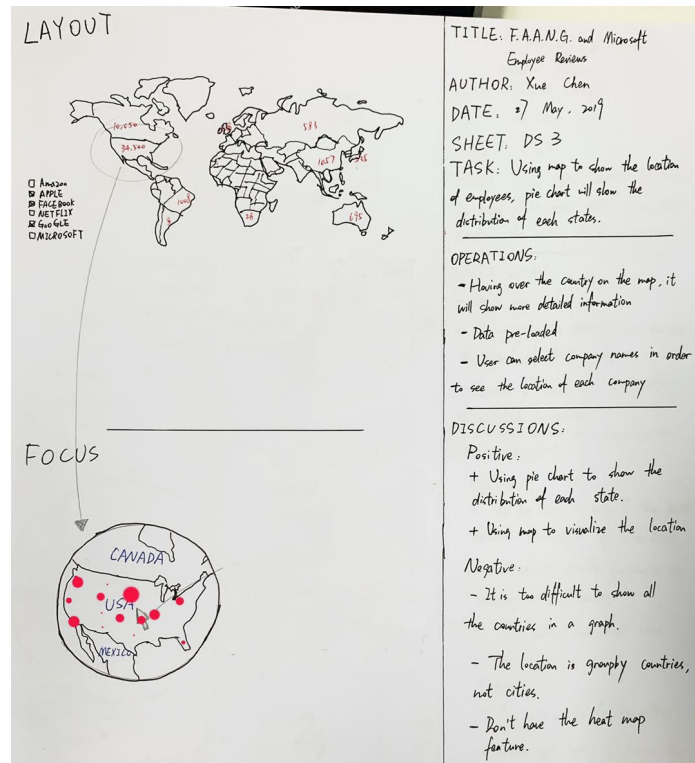 LAYOUT
34,500
583
1057
695
28
Amazon
APPLE
FACEBOOK
NETFLIX
GOOGLE
MICROSOFT
FOCUS
CANADA
USA
MEXICO
TITLE: F.A.A.N.G. and Microsoft
Employee Reviews
AUTHOR: Xue Chen
DATE: 27 May, 2019
SHEET: DS 3
TASK: Using map to show the location
of employees, pie chart will slow the
distribution of each states.
OPERATIONS:
- Having over the country on the map, it
will show more detailed information
- Data pre-loaded
- User can select company names in order
to see the location of each company
DISCUSSIONS:
Positive:
+ Using pie chart to show the
distribution of each state.
+ Using map to visualize the location
Negative:
- It is too difficult to show all
the countries in a graph.
- The location is groupby countries,
not cities.
- Don't have the heat map
feature.